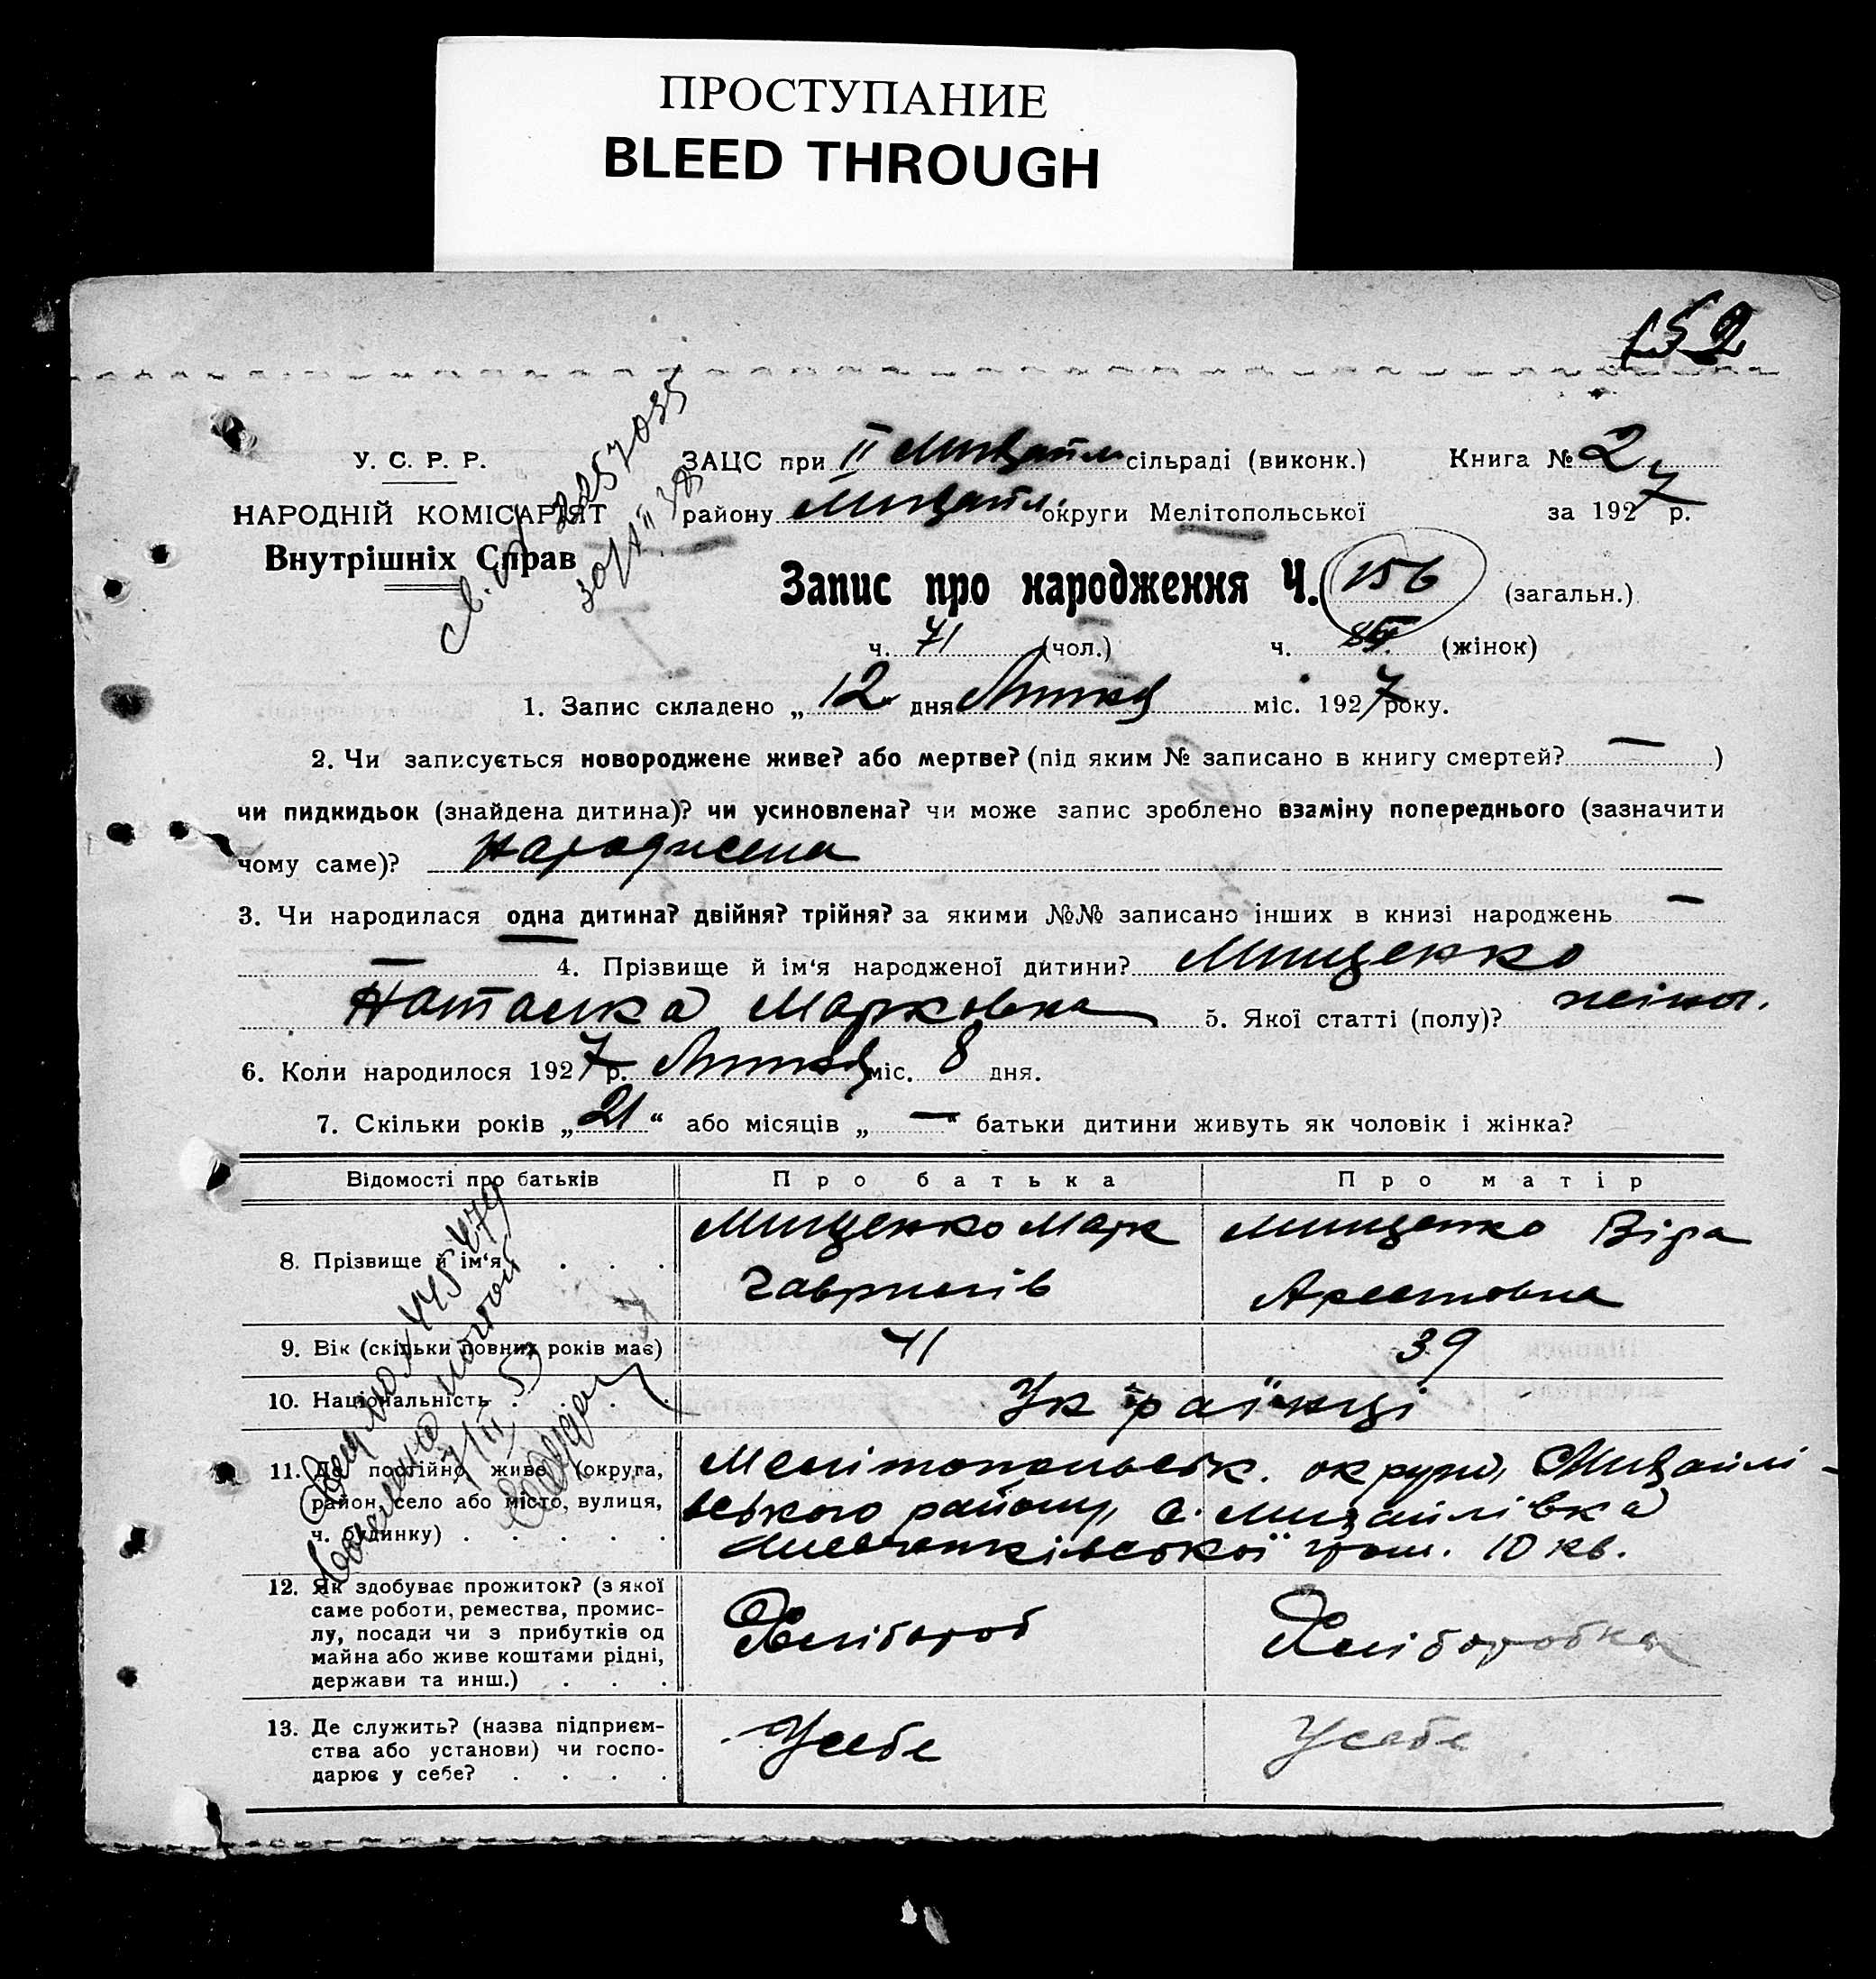 ПРОСТУПАНИЕ
BLEED THROUGH
152
У. С. Р. Р.
НАРОДНІЙ КОМІСАРІЯТ
Внутрішніх Справ
ЗАЦС при II Михайл сільраді (виконк.) Книга № 2
району Михайл. округи Мелітопольської за 1927 р.
Запис про народження Ч. 156 (загальн.)
ч. 71 (чол.) ч. 85 (жінок)
1. Запис складено „ 12 " дня Липця міс. 1927 року.
2. Чи записується новороджене живе? або мертве? (під яким № записано в книгу смертей? — )
чи пидкидьок (знайдена дитина)? чи усиновлена? чи може запис зроблено взаміну попереднього (зазначити
чому саме)? Народжена
3. Чи народилася одна дитина? двійня? трійня? за якими №№ записано інших в книзі народжень —
— 4. Прізвище й ім'я народженої дитини? Мищенко
Наталка Марковна 5. Якої статті (полу)? жіноч.
6. Коли народилося 1927 р. Липця міс. 8 дня.
7. Скільки років „ 21 “ або місяців „ — “ батьки дитини живуть як чоловік і жінка?
Відомості про батьків Про батька Про матір
8. Прізвище й ім'я . . . Мищенко Марк Мищенко Віра
Гаврилів Арестовна
9. Вік (скільки повних років має) 41 39
10. Національність . . . . Українці
11. Де постійно живе (округа, Мелітопольськ. округи, Михайлі-
район, село або місто, вулиця, вського району, с. Михайлівка
ч. будинку) . . . . . гром. 10 кв.
12. Як здобуває прожиток? (з якої
саме роботи, ремества, промис-
лу, посади чи з прибутків од
майна або живе коштами рідні,
держави та инш.) . . .
Хлібороб Хлібороб­ка
13. Де служить? (назва підприєм-
ства або установи) чи госпо-
дарює у себе? . . . .
Усебе Усебе